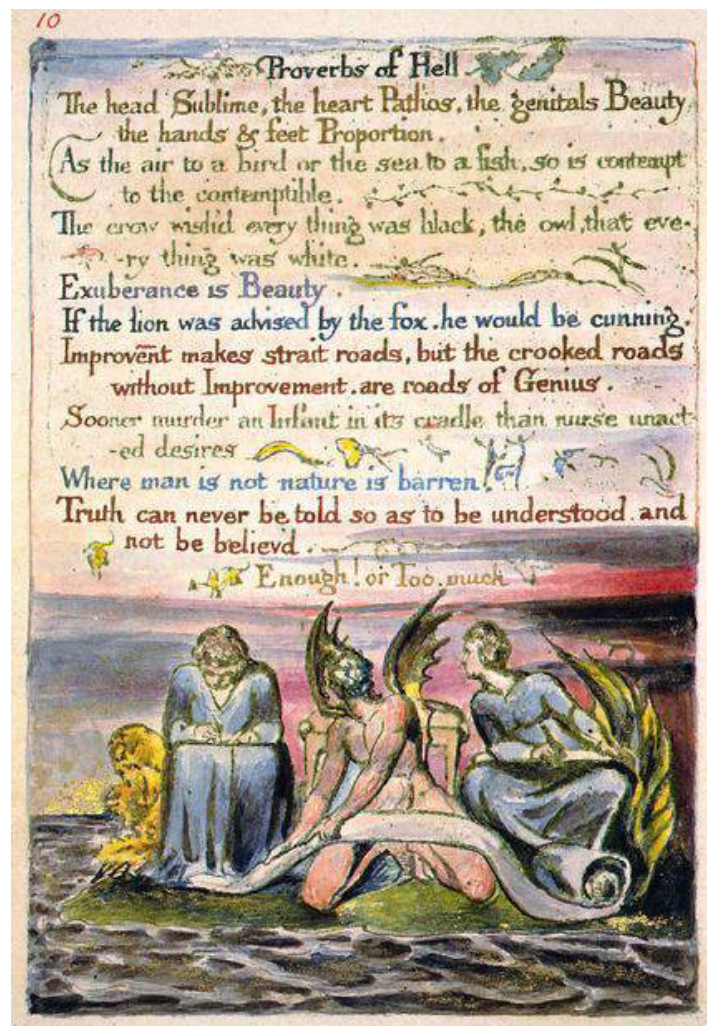 10
Proverbs of Hell
The head Sublime, the heart Pathos, the genitals Beauty
the hands & feet Proportion.
As the air to a bird or the sea to a fish, so is contempt
to the contemptible.
The crow wish'd every thing was black, the owl, that eve-
-ry thing was white.
Exuberance is Beauty.
If the lion was advised by the fox. he would be cunning.
Improvent makes strait roads, but the crooked roads
without Improvement. are roads of Genius.
Sooner murder an Infant in its cradle than nurse unact-
-ed desires
Where man is not nature is barren.
Truth can never be told so as to be understood. and
not be believ'd.
Enough! or Too much